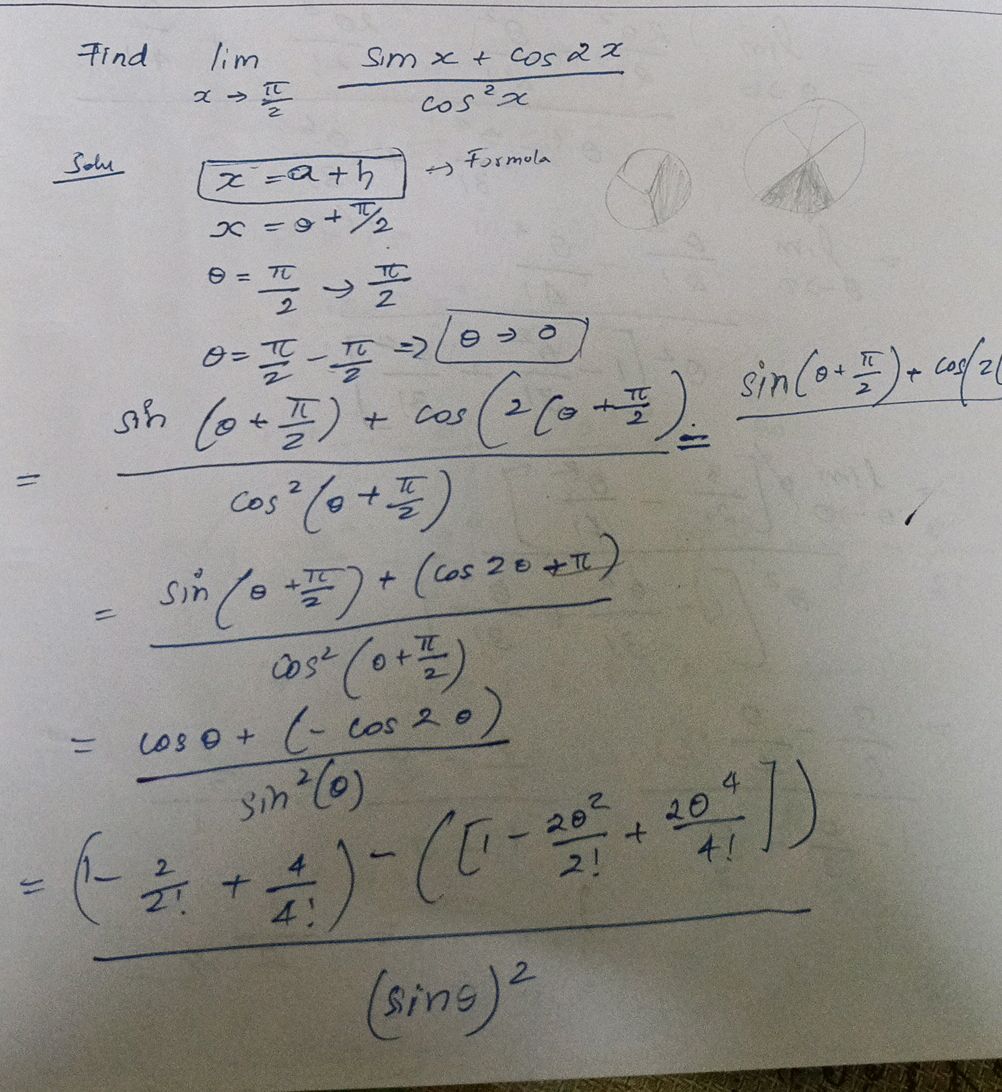 Find lim x → π/2 (sin x + cos 2x) / (cos² x)
Solu x = a + h → Formula
x = θ + π/2
θ = π/2 → π/2
θ = π/2 - π/2 ⇒ θ → 0
= (sin (θ + π/2) + cos (2 (θ + π/2)) / (cos² (θ + π/2)) = sin (θ + π/2) + cos (2(
= (sin (θ + π/2) + (cos 2θ + π)) / (cos² (θ + π/2))
= (cos θ + (- cos 2θ)) / (sin² (θ))
= ((1 - 2/2! + 4/4!) - ([1 - 2θ²/2! + 2θ⁴/4!])) / (sin θ)²